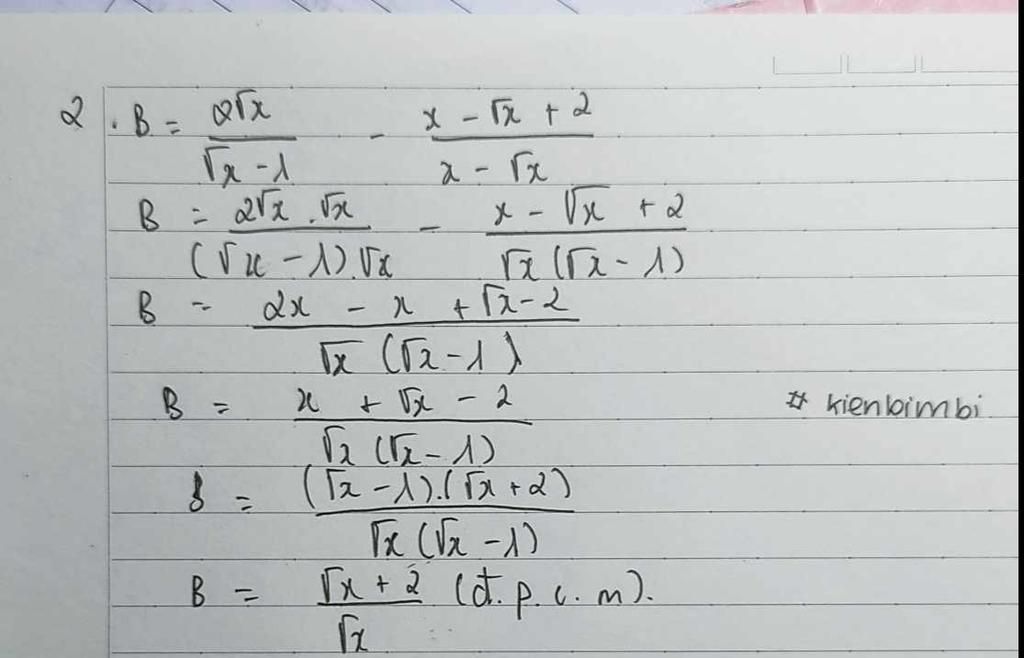 2. B = 2√x / (√x - 1) - (x - √x + 2) / (x - √x)
B = (2√x . √x) / ((√x - 1).√x) - (x - √x + 2) / (√x (√x - 1))
B = (2x - x + √x - 2) / (√x (√x - 1))
B = (x + √x - 2) / (√x (√x - 1)) # kienbimbi
B = ((√x - 1).(√x + 2)) / (√x (√x - 1))
B = (√x + 2) / √x (đ.p.c.m).